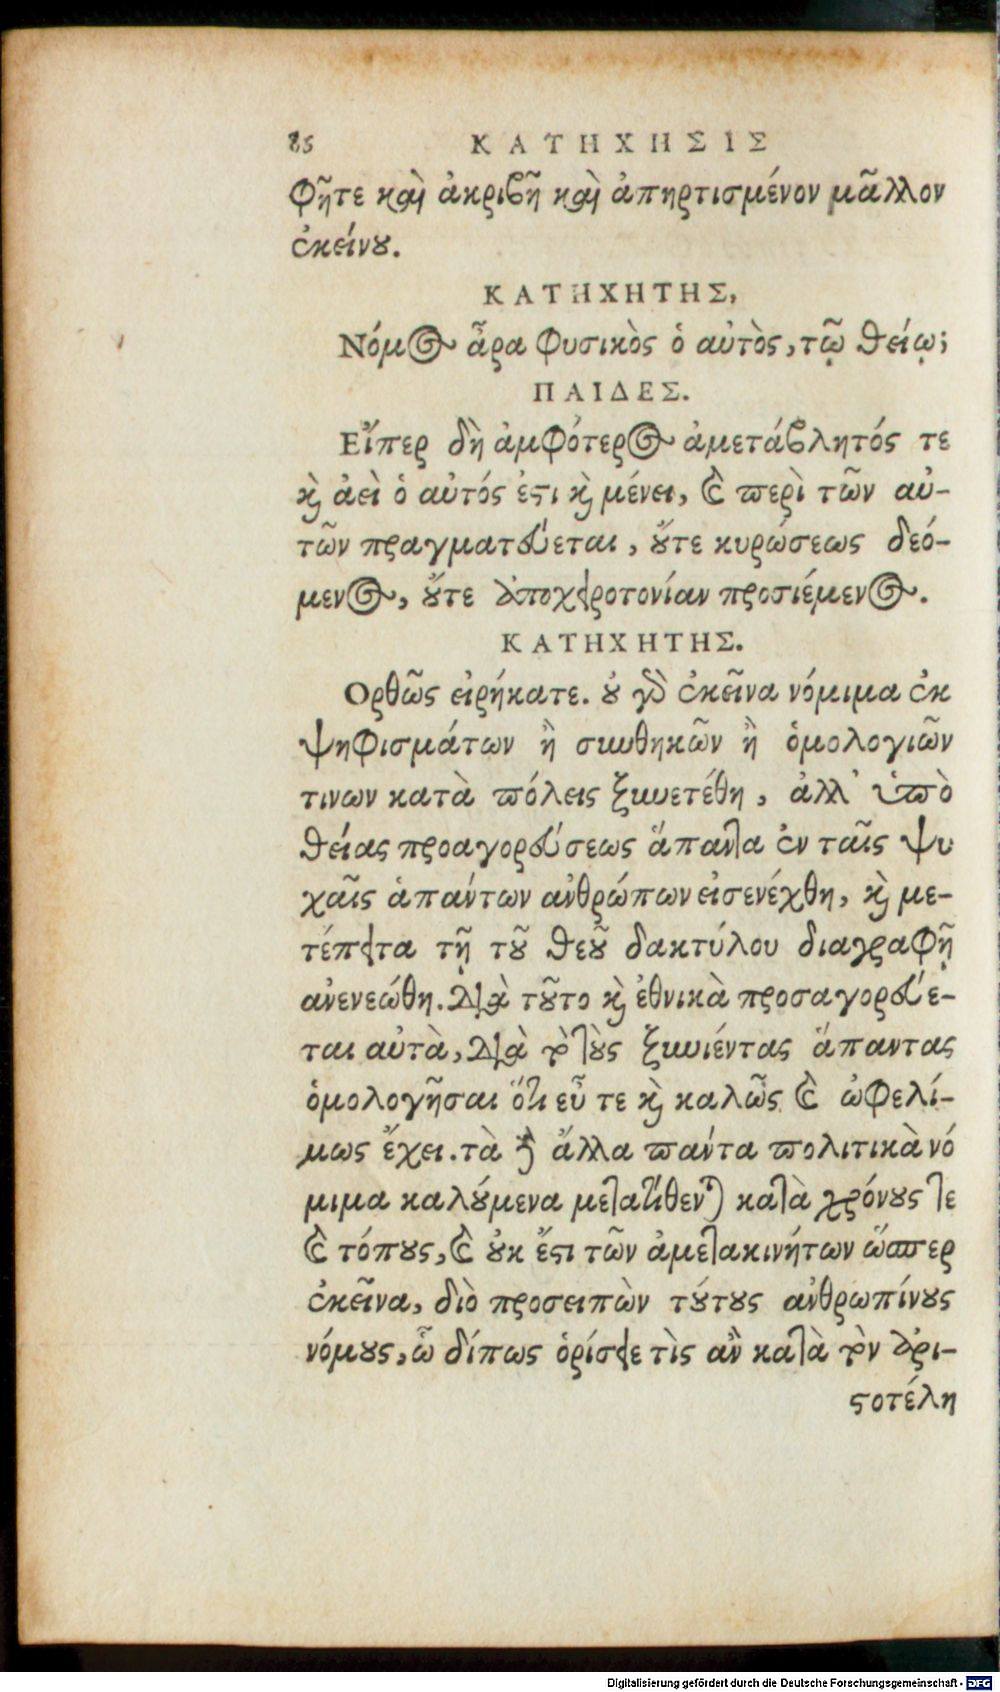 85 ΚΑΤΗΧΗΣΙΣ
φῆτε καὶ ἀκριβῆ καὶ ἀπηρτισμένον μᾶλλον
ἐκείνου.
ΚΑΤΗΧΗΤΗΣ,
Νόμος ἆρα φυσικὸς ὁ αὐτὸς, τῷ θείῳ;
ΠΑΙΔΕΣ.
Εἴπερ δὴ ἀμφότερος ἀμετάβλητός τε
καὶ ἀεὶ ὁ αὐτός ἐστι καὶ μένει, καὶ περὶ τῶν αὐ-
τῶν πραγματεύεται, οὔτε κυρώσεως δεό-
μενος, οὔτε ἀποχειροτονίαν προσιέμενος.
ΚΑΤΗΧΗΤΗΣ.
Ορθῶς εἰρήκατε. οὐ γὸ ἐκεῖνα νόμιμα ἐκ
ψηφισμάτων ἢ συνθηκῶν ἢ ὁμολογιῶν
τινων κατὰ πόλεις ξυνετέθη, ἀλλ' ὑπὸ
θείας προαγορεύσεως ἅπαντα ἐν ταῖς ψυ
χαῖς ἁπάντων ἀνθρώπων εἰσενέχθη, καὶ με-
τέπειτα τῇ τοῦ θεοῦ δακτύλου διαγραφῇ
ἀνενεώθη. Διὰ τοῦτο καὶ ἐθνικὰ προσαγορεύε-
ται αὐτὰ, Διὰ τὸ τοὺς ξυνιέντας ἅπαντας
ὁμολογῆσαι ὅτι εὖ τε καὶ καλῶς καὶ ὠφελί-
μως ἔχει. τὰ δὲ ἄλλα πάντα πολιτικὰ νό
μιμα καλούμενα μετατίθενται κατὰ χρόνους τε
καὶ τόπους, καὶ οὐκ ἔστι τῶν ἀμετακινήτων ὥσπερ
ἐκεῖνα, διὸ προσειπὼν τούτους ἀνθρωπίνους
νόμους, ὧ δίπως ὁρίσειε τὶς ἂν κατὰ τὸν Ἀρι-
στοτέλη
Digitalisierung gefördert durch die Deutsche Forschungsgemeinschaft - DFG